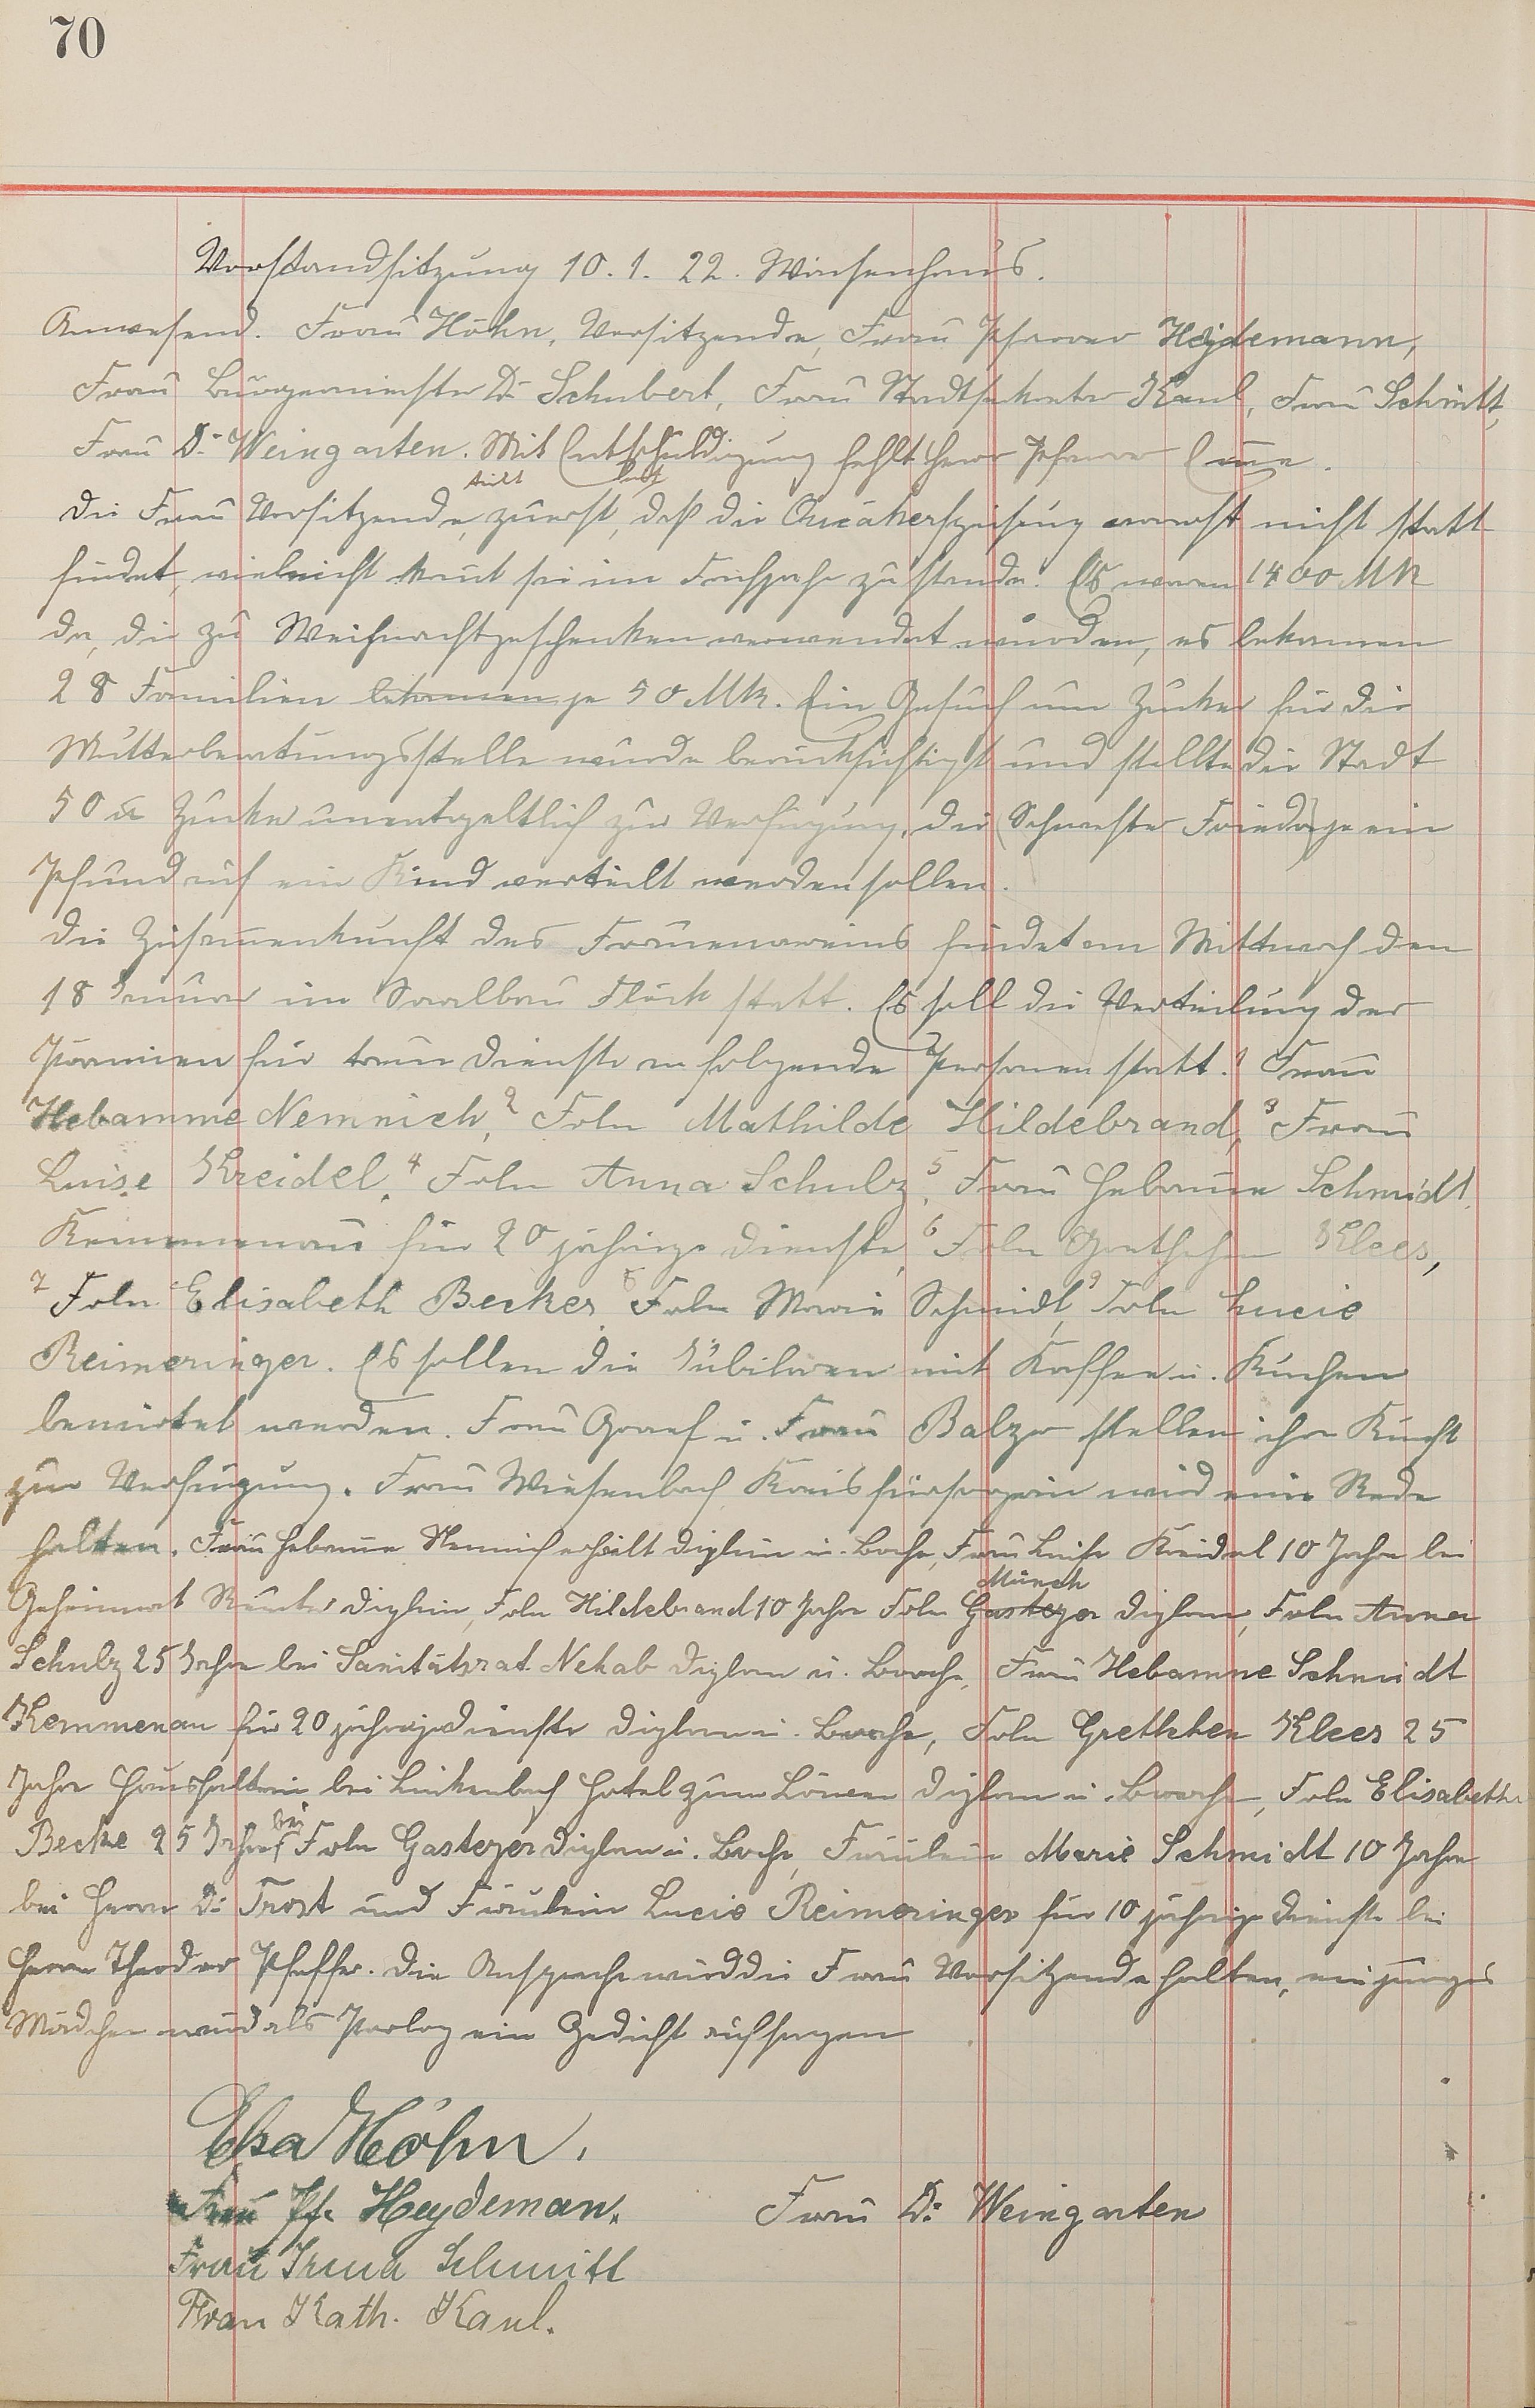 70
Vorstandsitzung 10. 1. 22. Waisenhaus.
Anwesend. Frau Höhn, Vorsitzende, Frau Pfarrer Heydemann,
Frau Bürgermeister Dr. Schubert, Frau Stadtsekretär Kaul, Frau Schmitt,
Frau Dr. Weingarten. Mit Entschuldigung fehlt Herr Pfarrer
teilt mit
Die Frau Vorsitzende, zuerst, daß die Quäkerspeisung vorerst nicht statt
findet, vielleicht kommt sie im Frühjahr zu stande. Es waren 1400 Mk
da, die zu Weihnachtgeschenken verwendet wurden, es bekamen
28 Familien bekamen je 50 Mk. Ein Gesuch um Zucker für die
Mutterberatungsstelle wurde berücksichtigt und stellte die Stadt
50 Zucker unentgeltlich zur Verfügung, die Schwester Frieda je ein
Pfund auf ein Kind verteilt werden sollen.
Die Zusammenkunft des Frauenvereins findet am Mittwoch den
18 Januar im Saalbau Flöck statt. Es soll die Verteilung der
Prämien für treue Dienste an folgende Personen statt. 1 Frau
Hebamme Nemnich, 2 Frln Mathilde Hildebrand, 3 Frau
Luise Kreidel. 4 Frln Anna Schulz, 5 Frau Hebamme Schmidt
Kemmenau für 20 jährige Dienste, 6 Frln Gretchen Klees,
7 Frln Elisabeth Becker, 8 Frln Marie Schmidt, 9 Frln Lucie
Reimeringer. Es sollen die Jubilaren mit Kaffee u. Kuchen
bewirtet werden. Frau Graef u. Frau Balzer stellen ihre Kunst
zur Verfügung. Frau Wiesenbach Kreisfürsorgerin wird eine Rede
halten. Frau Hebamme Nemnich erhält Diplom u. Broche, Frau Luise Kreidel 10 Jahre bei
Geheimrat Diplom, Frln Hildebrand 10 Jahre Frln Gasteyer Diplom, Frln Anna
Münch
Schulz 25 Jahre bei Sanitätsrat Nehab Diplom u. Broche, Frau Hebamme Schmidt
Kemmenau für 20 jährige Dienste Diplom u. Broche, Frln Gretchen Klees 25
Jahre Haushälterin bei Linkenbach Hotel zum Löwen Diplom u. Broche, Frln Elisabeth
Becke 25 Jahre bei Frln Gasteyer Diplom u. Broche, Fräulein Marie Schmidt 10 Jahre
bei Herrn Dr. Trost und Fräulein Lucie Reimeringer für 10 jährige Dienste bei
Herrn Theodor Pfeffer. Die Ansprache wird die Frau Vorsitzende halten, ein junges
Mädchen wird als Prolog ein Gedicht aufsagen
Elsa Höhn.
Frau Pf. Heydeman. Frau Dr. Weingarten
Frau Irma Schmitt
Frau Kath. Kaul.